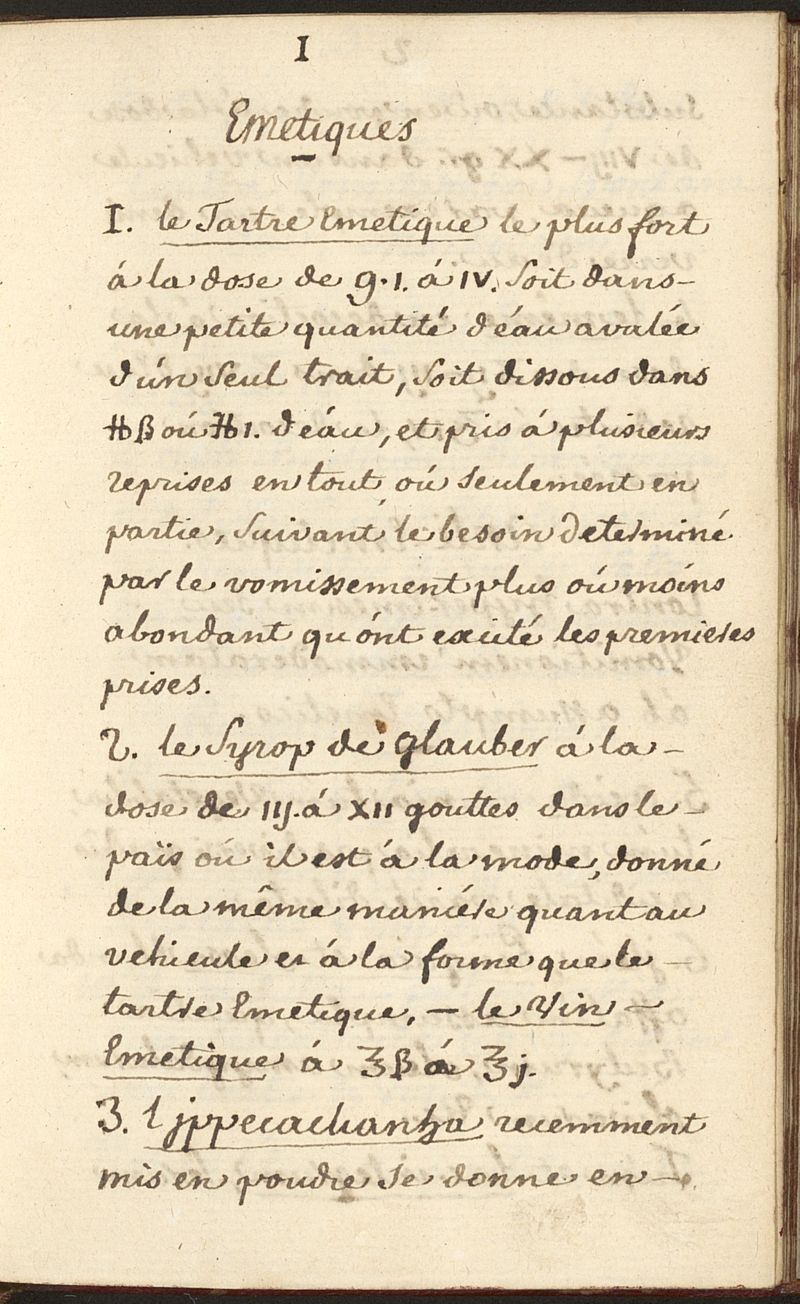 I
Emetiques
I. le Tartre Emetique le plus fort
á la dose de g. I. á IV. soit dans-
une petite quantité d'éau avalée
d'ún seul trait, soit dissous dans
℔ß oú ℔1. d'eáu, et pris á plusieurs
reprises en tout oú seulement en
partie, suivant le besoin determiné
par le vomissement plus oú moins
abondant qu'ónt excité les premieres
prises.
2. le Syrop de glauber á la-
dose de IIJ. á XII gouttes dans le-
païs oú il est á la mode, donné
de la même maniére quant au
vehicule et á la forme que le-
tartre Emetique. - le Vin -
Emetique á ℥ß á ℥j.
3. l'jppecachanha recemment
mis en poudre se donne en-